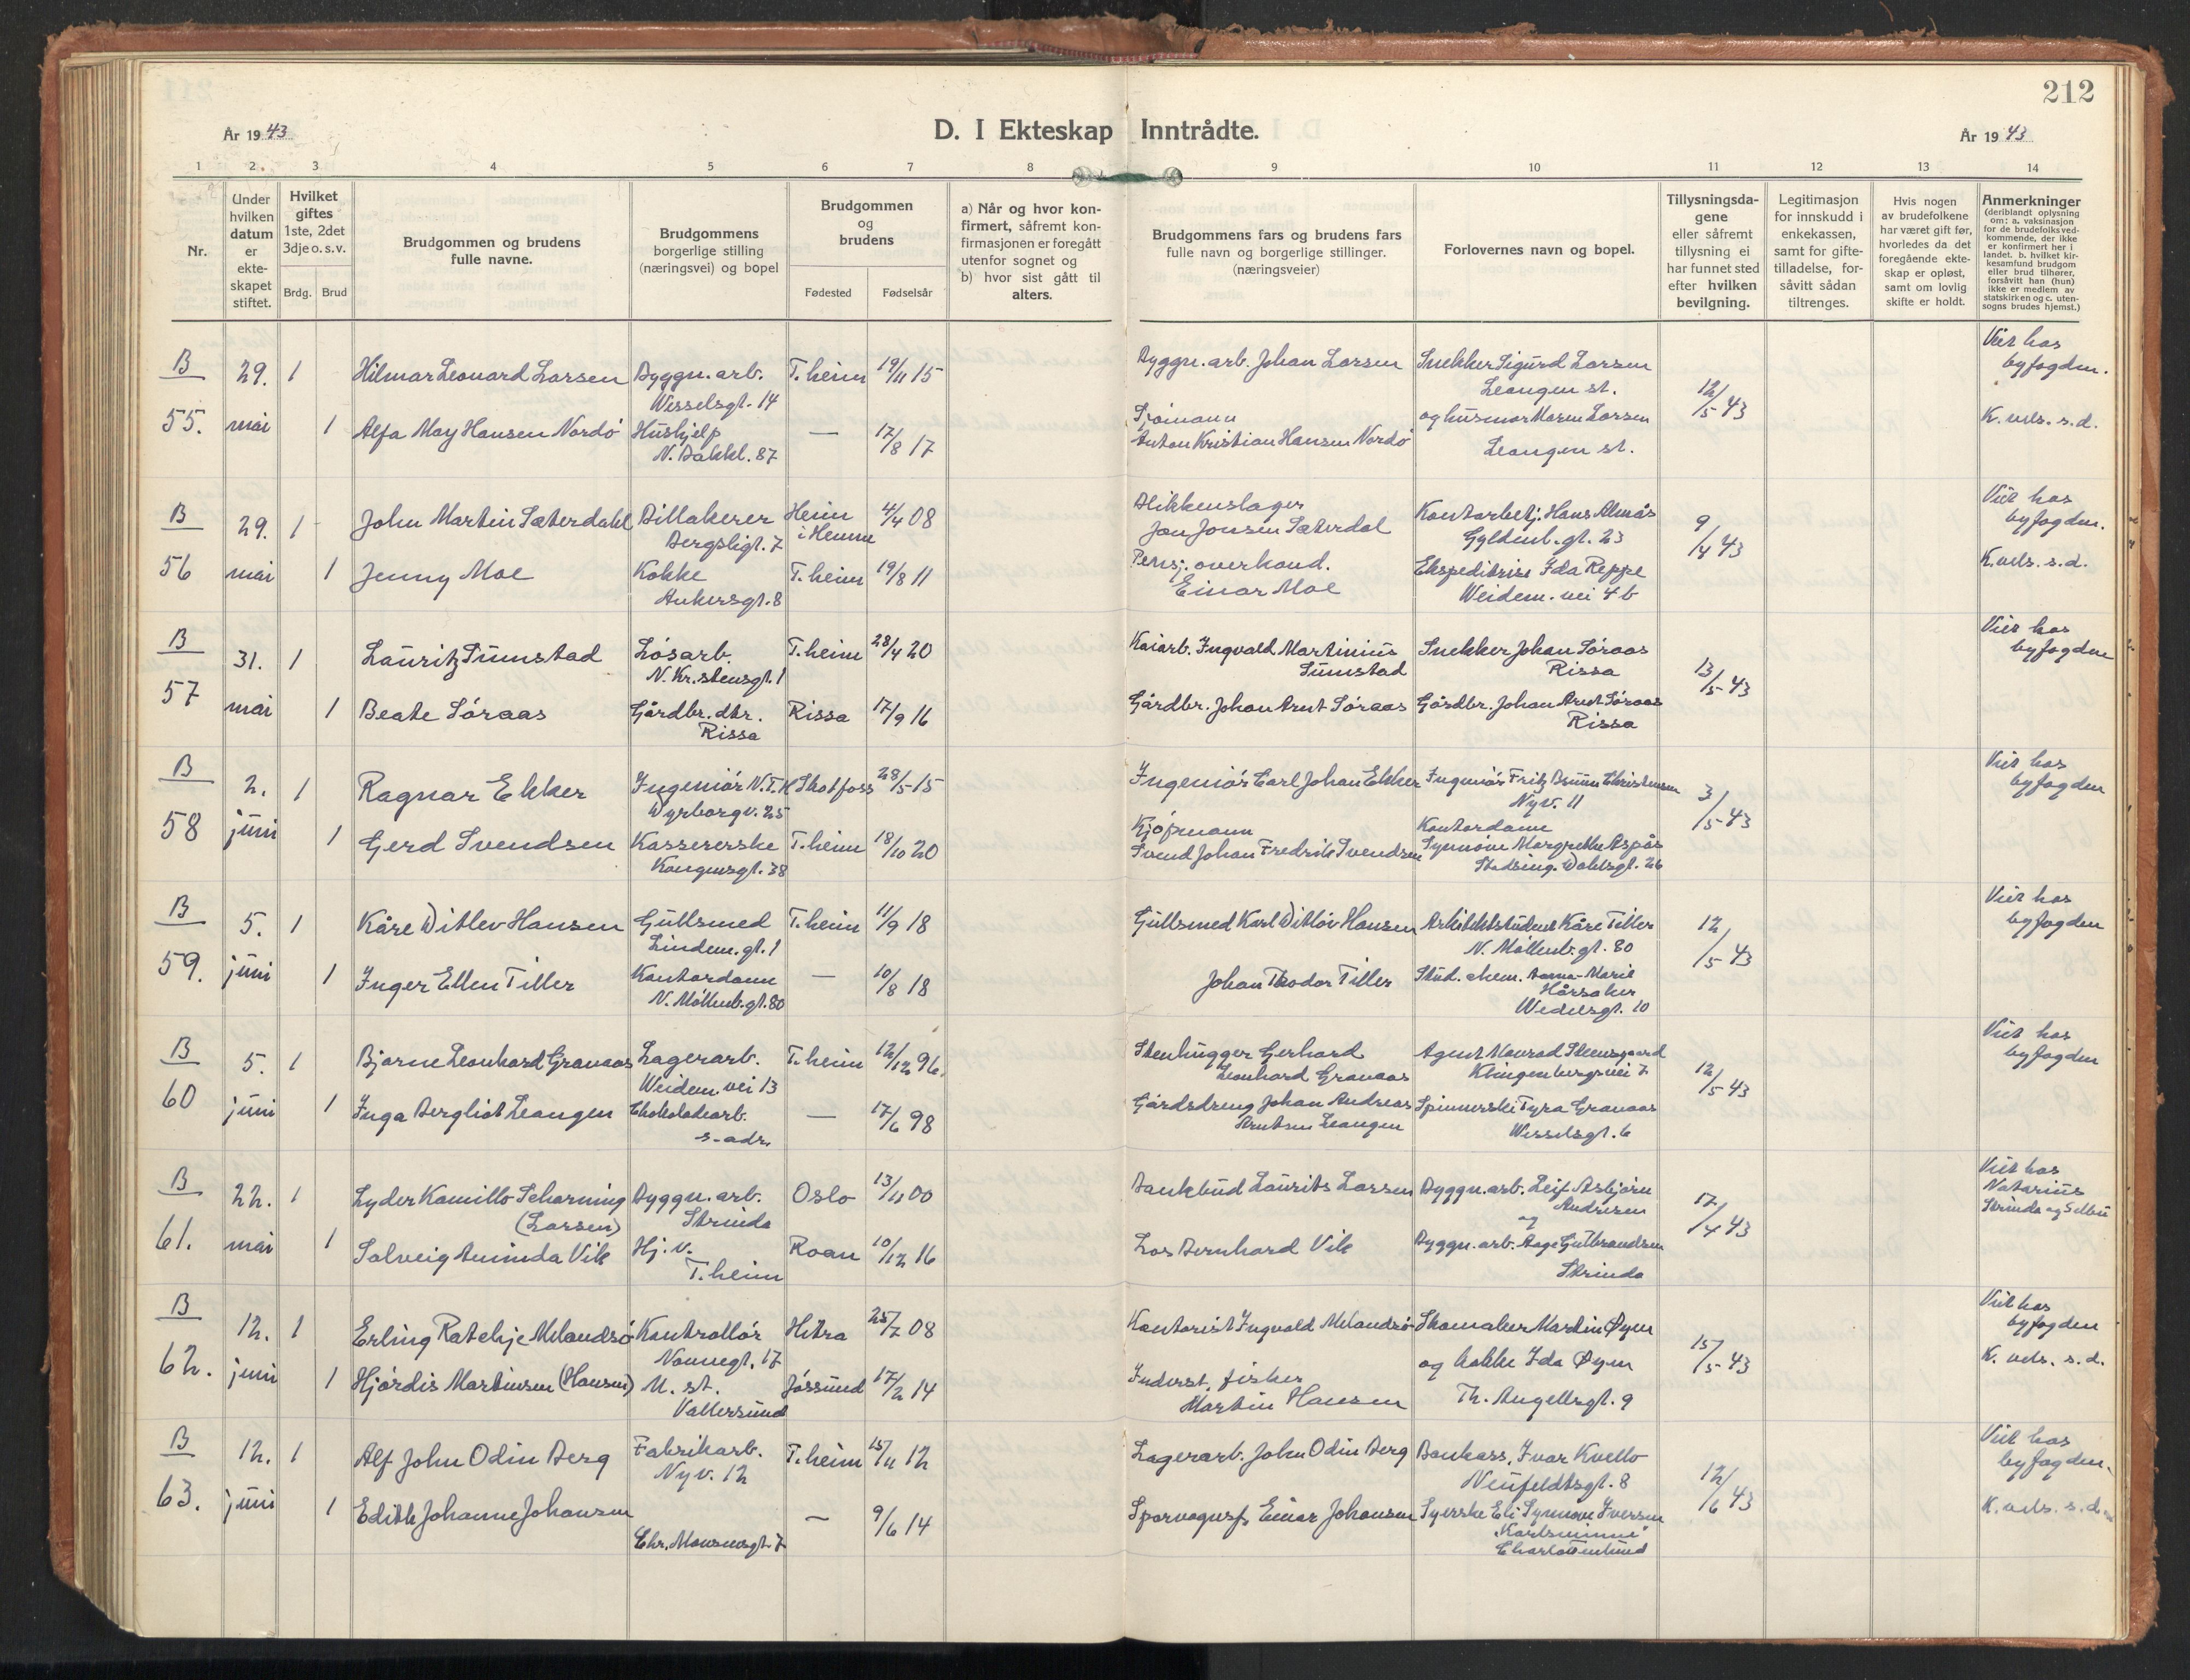 212
År 19 43
D. I Ekteskap Inntrådte.
År 19 43
1 2. 3 4 5 6 7 8 9 10 11 12 13 14
Nr.
Under hvilken datum er ekte-skapet stiftet.
Hvilket giftes 1ste, 2det 3dje o. s. v.
Brdg. Brud
Brudgommen og brudens fulle navne.
Brudgommens borgerlige stilling (næringsvei) og bopel
Brudgommen og brudens
Fødested Fødselsår
a) Når og hvor kon-firmert, såfremt kon-firmasjonen er foregått utenfor sognet og b) hvor sist gått til alters.
Brudgommens fars og brudens fars fulle navn og borgerlige stillinger. (næringsveier)
Forlovernes navn og bopel.
Tillysningsda-gene eller såfremt tillysning ei har funnet sted efter hvilken bevilgning.
Legitimasjon for innskudd i enkekassen, samt for gifte-tilladelse, for-såvitt sådan tiltrenges.
Hvis nogen av brudefolkene har været gift før, hvorledes da det foregående ekte-skap er opløst, samt om lovlig skifte er holdt.
Anmerkninger (deriblandt oplysning om: a. vaksinasjon for de brudefolks ved-kommende, der ikke er konfirmert her i landet. b. hvilket kir-kesamfund brudgom eller brud tilhører, forsåvitt han (hun) ikke er medlem av statskirken og c. uten-sogns brudes hjemst.)
B 29. 1 Hilmar Leonard Larsen Byggn. arb. T.heim 19/11 15 Byggn. arb. Johan Larsen Snekker Sigurd Larsen Viet hos
Wesselsgt. 14 Leangen st. 12/5 43 byfogden.
55. mai 1 Alfa May Hansen Nordö Hushjelp — 17/8 17 Sjömann og husmor Maren Larsen K. vels. s.d.
N. Bakkl. 87 Anton Kristian Hansen Nordö Leangen st.
B 29. 1 John Martin Sæterdahl Billakerer Heim 4/4 08 Blikkenslager Kontorbetj. Hans Almås Viet hos
Bergsligt. 7 i Hemne Jon Jonsen Sæterdal Gyldenl. gt. 23 9/4 43 byfogden.
56 mai 1 Jenny Moe Kokke T.heim 19/8 11 Pensj. overkond. Ekspeditrise Ida Reppe K. vels. s.d.
Ankersgt. 8 Einar Moe Weidem. vei 4 b
B 31. 1 Lauritz Sumstad Løsarb. T.heim 28/4 20 Kaiarb. Ingvald Martinius Snekker Johan Søraas Viet hos
N. Kr.stensgt. 1 Sumstad Rissa 13/5 43 byfogden
57 mai 1 Beate Søraas Gårdbr. dtr. Rissa 17/9 16 Gårdbr. Johan Arnt Søraas Gårdbr. Johan Arnt Søraas
Rissa Rissa
B 2. 1 Ragnar Ekker Ingeniör N.T.H Skotfoss 28/5 15 Ingeniör Carl Johan Ekker Ingeniör Fritz Bruun Christensen Viet hos
Dyrborgv. 25 Nyv. 11 3/5 43 byfogden
58 juni 1 Gerd Svendsen Kassererske T.heim 18/10 20 Kjöpmann Kontordame
Kongensgt. 38 Svend Johan Fredrik Svendsen Synnöve Margrethe Aspås
Stadsing. Dahlsgt. 26
B 5. 1 Kåre Ditlev Hansen Gullsmed T.heim 11/9 18 Gullsmed Karl Ditlöv Hansen Arkitektstudent Kåre Tiller Viet hos
Lindem. gt. 1 N. Möllenb. gt. 80 12/5 43 byfogden
59. juni 1 Inger Ellen Tiller Kontordame — 10/8 18 Johan Teodor Tiller Stud. chem. Anna-Marie
N. Möllenb. gt. 80 Hårsaker
Wedelsgt. 10
B 5. 1 Bjarne Leonhard Granaas Lagerarb. T.heim 12/12 96. Stenhugger Gerhard Agent Konrad Steensgaard Viet hos
Weidem. vei 13 Leonhard Granaas Klingenbergsvei 7 12/5 43 byfogden
60 juni 1 Inga Bergliot Leangen Chokoladearb. — 17/6 98 Gårdsdreng Johan Andreas Spinnerske Tyra Granaas
s. adr. Arntsen Leangen Wesselsgt. 6
B 22. 1 Lyder Kamillo Scharning Byggn. arb. Oslo 13/11 00 Bankbud Laurits Larsen Byggn. arb. Leif Asbjörn Viet hos
(Larsen) Strinda Andresen 17/4 43 Notarius
og Strinda og Selbu
61. mai 1 Solveig Aminda Vik Hj. v. Roan 10/12 16 Los Bernhard Vik Byggn. arb. Aage Gulbrandsen
T.heim Strinda
B 12. 1 Erling Ratchje Melandsö Kontrollör Hitra 25/7 08 Kontorist Ingvald Melandsö Skomaker Martin Øyen Viet hos
Nonnegt. 17 15/5 43 byfogden
62. juni 1 Hjördis Martinsen (Hansen) U. st. Jössund 17/2 14 Inderst, fisker og kokke Ida Øyen K. vels. s.d.
Vallersund Martin Hansen Th. Angellsgt. 9
B 12. 1 Alf John Odin Berg Fabrikarb. T.heim 15/11 12 Lagerarb. John Odin Berg Bankass. Ivar Kvello Viet hos
Nyv. 12 Neufeldtsgt. 8 12/6 43 byfogden.
63. juni 1 Edith Johanne Johansen — 9/6 14 Sporvognsf. Einar Johansen Syerske Eli Synnöve Iversen K. vels. s.d.
Chr. Monsensgt. 7 "Karlsminne"
Charlottenlund